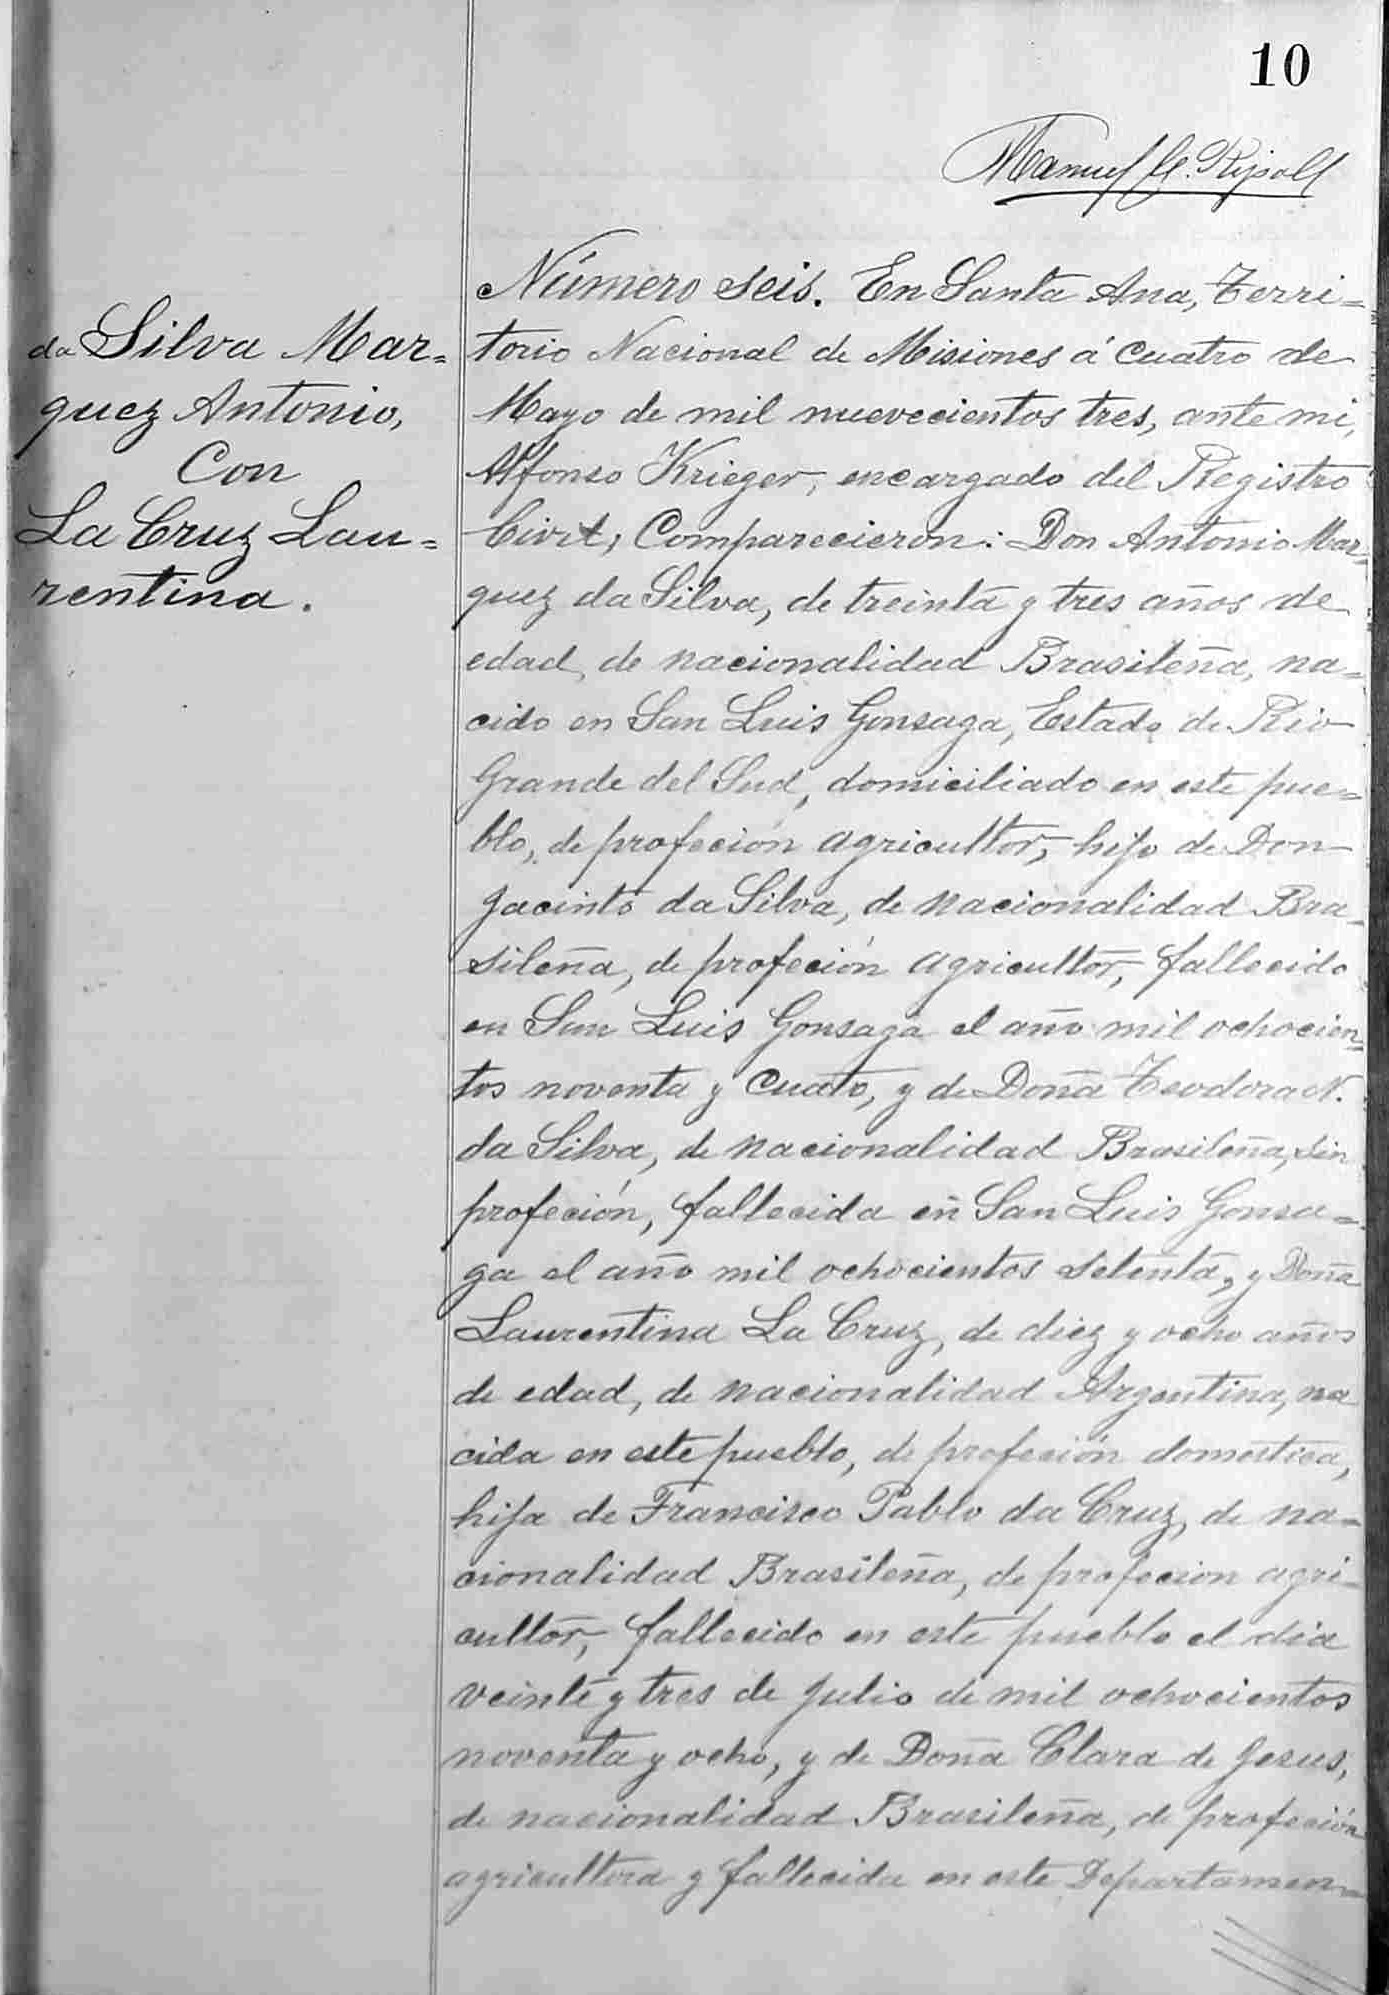 10
Manuel A. Ripoll
da Silva Mar=
quez Antonio,
Con
La Cruz Lau=
rentina.
Número seis. En Santa Ana, Terri=
torio Nacional de Misiones á cuatro de
Mayo de mil nuevecientos tres, ante mi,
Alfonso Krieger, encargado del Registro
Civil, Comparecieron: Don Antonio Mar=
quez da Silva, de treinta y tres años de
edad, de nacionalidad Brasileña, na=
cido en San Luis Gonsaga, Estado de Rio
Grande del Sud, domiciliado en este pue=
blo, de profeción agricultor, hijo de Don
Jacinto da Silva, de nacionalidad Bra=
sileña, de profeción agricultor, fallecido
en San Luis Gonsaga el año mil ochocien=
tos noventa y cuato, y de Doña Teodora N.
da Silva, de nacionalidad Brasileña, sin
profeción, fallecida en San Luis Gonsa=
ga el año mil ochocientos setenta, y Doña
Laurentina La Cruz, de diez y ocho años
de edad, de nacionalidad Argentina, na
cida en este pueblo, de profeción domestica,
hija de Francisco Pablo da Cruz, de na=
cionalidad Brasileña, de profecion agri=
cultor, fallecido en este pueblo el dia
veinte y tres de Julio de mil ochocientos
noventa y ocho, y de Doña Clara de Jesus,
de nacionalidad Brasileña, de profeción
agricultora y fallecida en este Departamen=